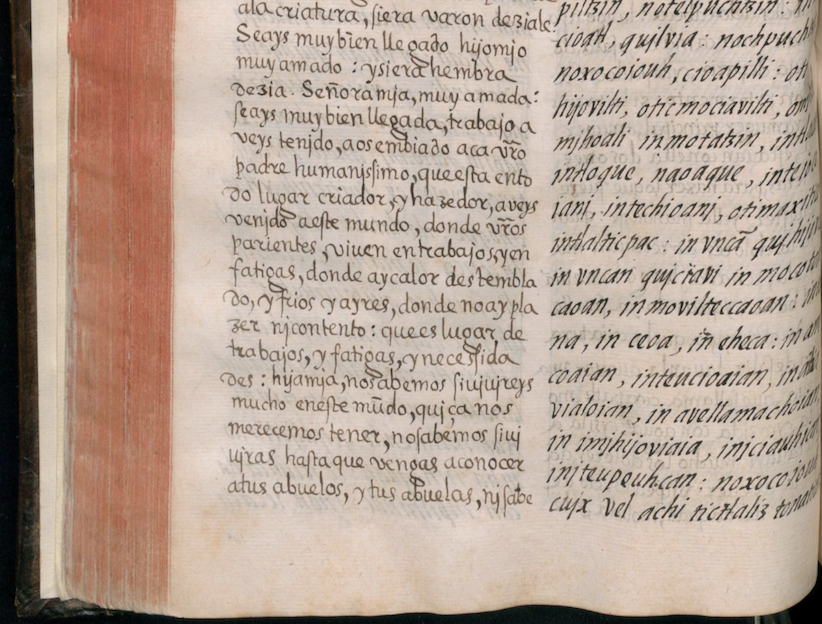 ala criatura, siera varon deziale:
Seays muy bien llegado hijo mjo
muy amado: ysiera hembra
dezia. Señora mja, muy amada:
seays muy bien llegada, trabajo a
veys tenjdo, aos embiado aca vr̃o
padre humanjssimo, que esta en to
do lugar criador, y hazedor, aveys
venjdo a este mundo, donde vr̃os
parientes, viuen en trabajos, y en
fatigas, donde ay calor destembla
do, y frios y ayres, donde no ay pla
zer nj contento: que es lugar de
trabajos, y fatigas, y necessida
des: hija mja, no sabemos si ujujreys
mucho en este mũdo, quiça nos
merecemos tener, no sabemos si uj
ujras hasta que vengas a conocer
atus abuelos, y tus abuelas, nj sabe
piltzin, notelpuchtzin:
cioatl, quilvia: nochpuch
noxocoiouh, cioapilli: oti
hijovilti, oticmociavilti, om
mjhoali in motatzin, in tl
in tloque, naoaque, in teio
ianj, in techioanj, otimaxiti
in tlalticpac: in vncã quihijo
in vncan quiciavi in mocol
caoan, in movilteccaoan:
na, in ceoa, in eheca: in a
coaian, in teucioaian, in
vialoian, in avellamachoian,
in jmjhijoviaia, injciauhia
injteupeuhcan: noxocoiou
cujx vel achi ticitlaliz tonati